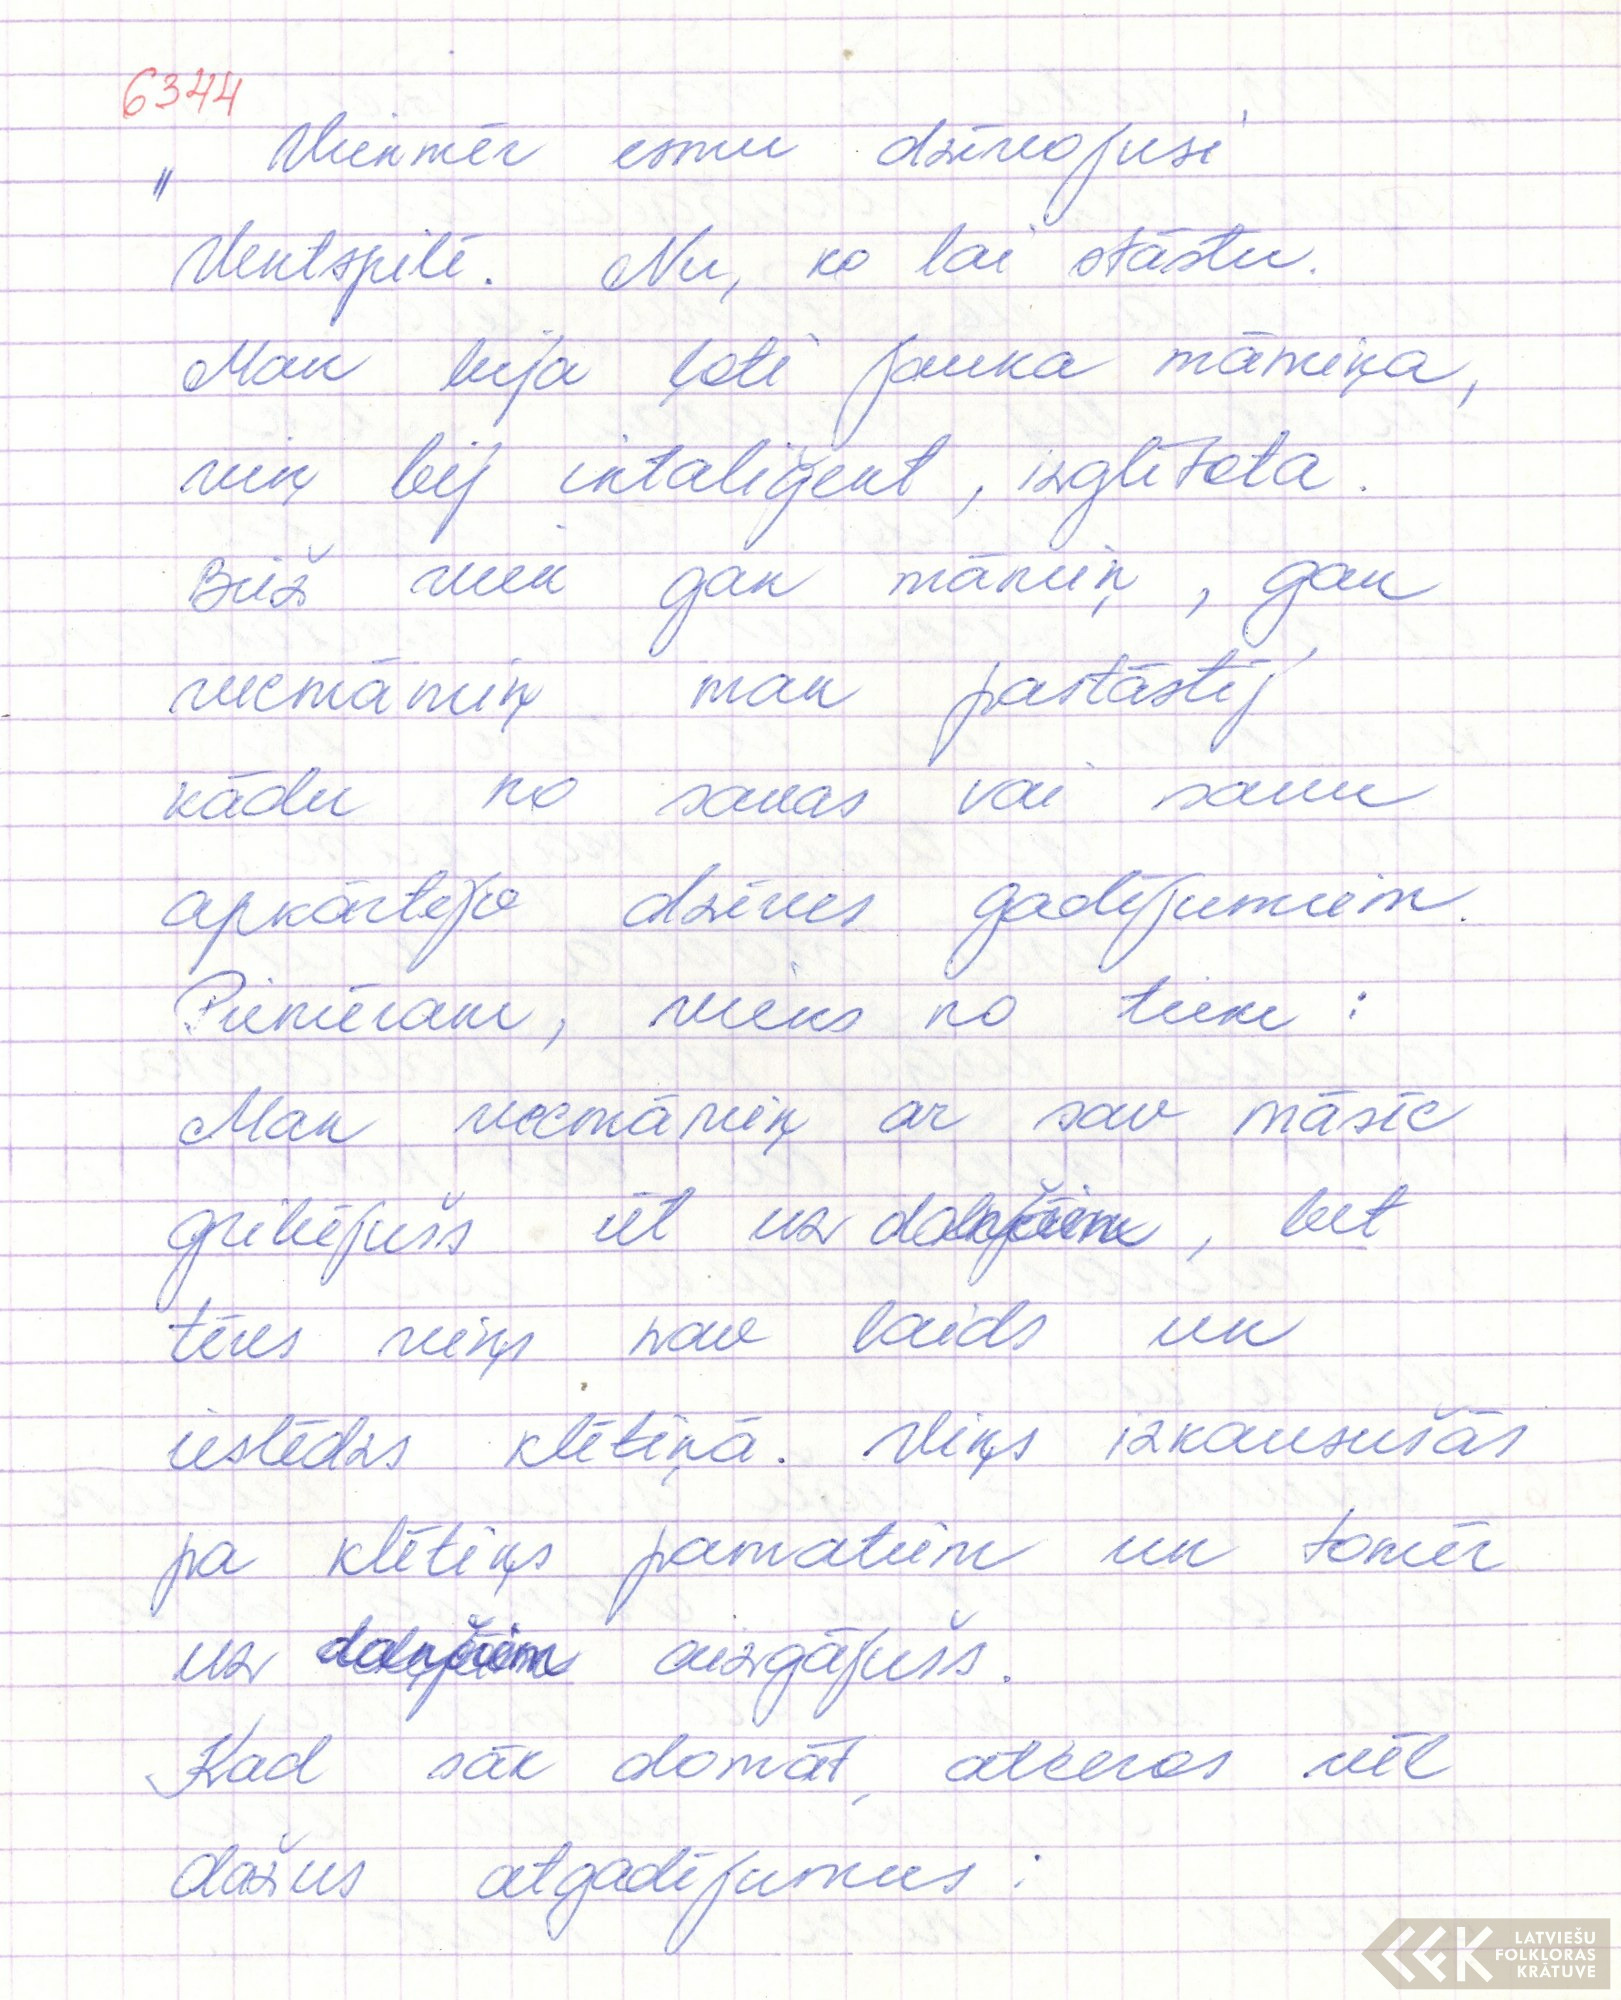 6344
„ Vienmēr esmu dzīvojusi
Ventspilī. Nu, ko lai stāstu.
Man bija ļoti jauka māmiņa,
viņ bij intaliģent, izglītota.
Biež vien gan māmiņ, gan
vecmāmiņ man pastāstīj
kādu no savas vai savu
apkārtējo dzīves gadījumiem.
Piemēram, viens no tiem :
Man vecmāmiņ ar sav māsīc
gribējušs iet uz dančiem, bet
tēvs viņs nav laids un
ieslēdzs klētiņā. Viņs izkausušās
pa klētiņs pamatiem un tomēr
uz dančiem aizgājušs.
Kad sāk domāt, atceros vēl
dažus atgadījumus :
LATVIEŠU
FOLKLORAS
KRĀTUVE